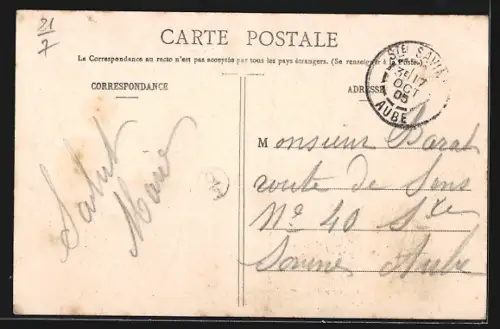 21
7
CARTE POSTALE
La Correspondance au recto n'est pas acceptée par tous les pays étrangers. (Se renseigner à la Poste).
CORRESPONDANCE
ADRESSE
STE SAVI
3E 17
OCT
05
AUBE
Salut
Marie
Monsieur Barat
route de Sens
No 40 Ste
Savine Aube